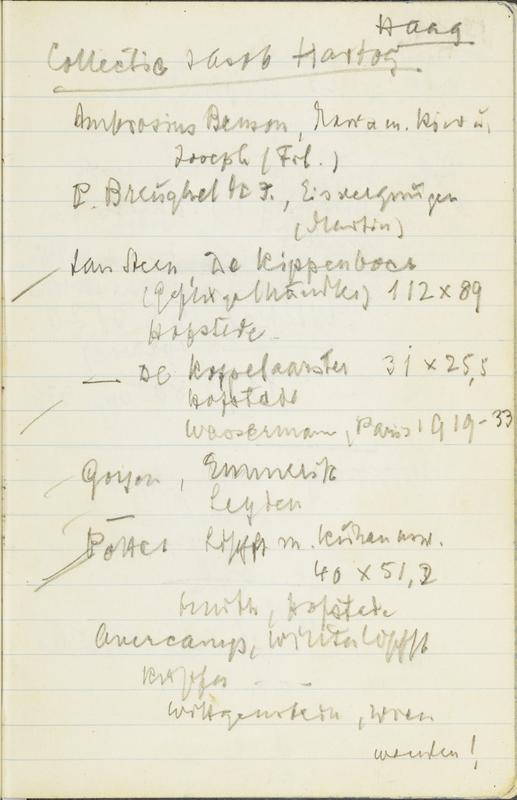 Haag
Collectie Jacob Hartog
Ambrosius Benson, Maria m. Kind u.
Joseph (Frl.)
P. Breughel de J., Eisvergnügen
(Martin)
Jan Steen, De Kippenboer
(Geflügelhändler) 112 x 89
Hofstede
— De Koppelaarster 31 x 25,5
Hofstede
Wassermann, Paris 1919-33
Goyen, Emmerik
Leyden
Potter Ldschft m. Kühen usw.
40 x 51,2
Smith, Hofstede
Avercamp, Winterldschft
Kupfer
Wittgenstein, Wien
wenden!